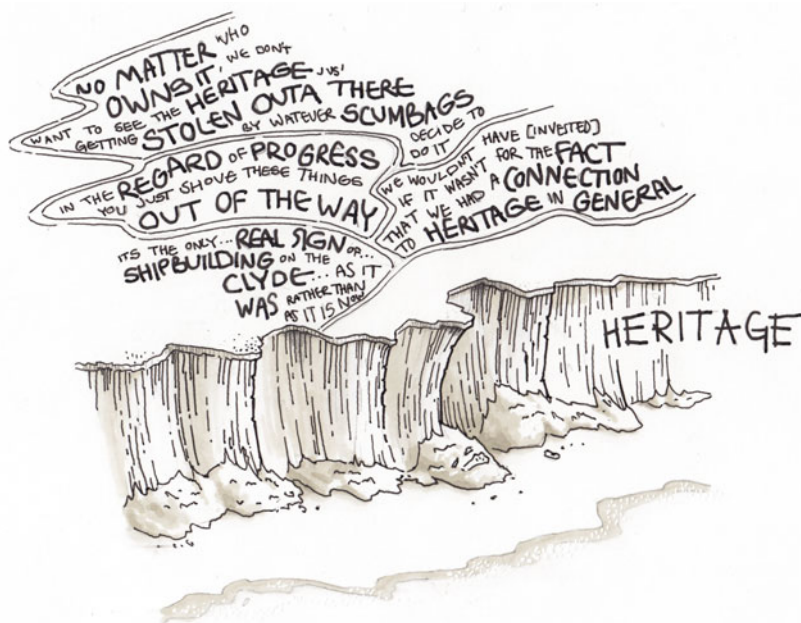 NO MATTER WHO
OWNS IT, WE DON'T
WANT TO SEE THE HERITAGE JUS'
GETTING STOLEN OUTA THERE
BY WATEVER SCUMBAGS
DECIDE TO
DO IT
IN THE REGARD OF PROGRESS
YOU JUST SHOVE THESE THINGS
OUT OF THE WAY
WE WOULDN'T HAVE [INVESTED]
IF IT WASN'T FOR THE FACT
THAT WE HAD A CONNECTION
TO HERITAGE IN GENERAL
ITS THE ONLY... REAL SIGN OF...
SHIPBUILDING ON THE
CLYDE... AS IT
WAS RATHER THAN
AS IT IS NOW
HERITAGE